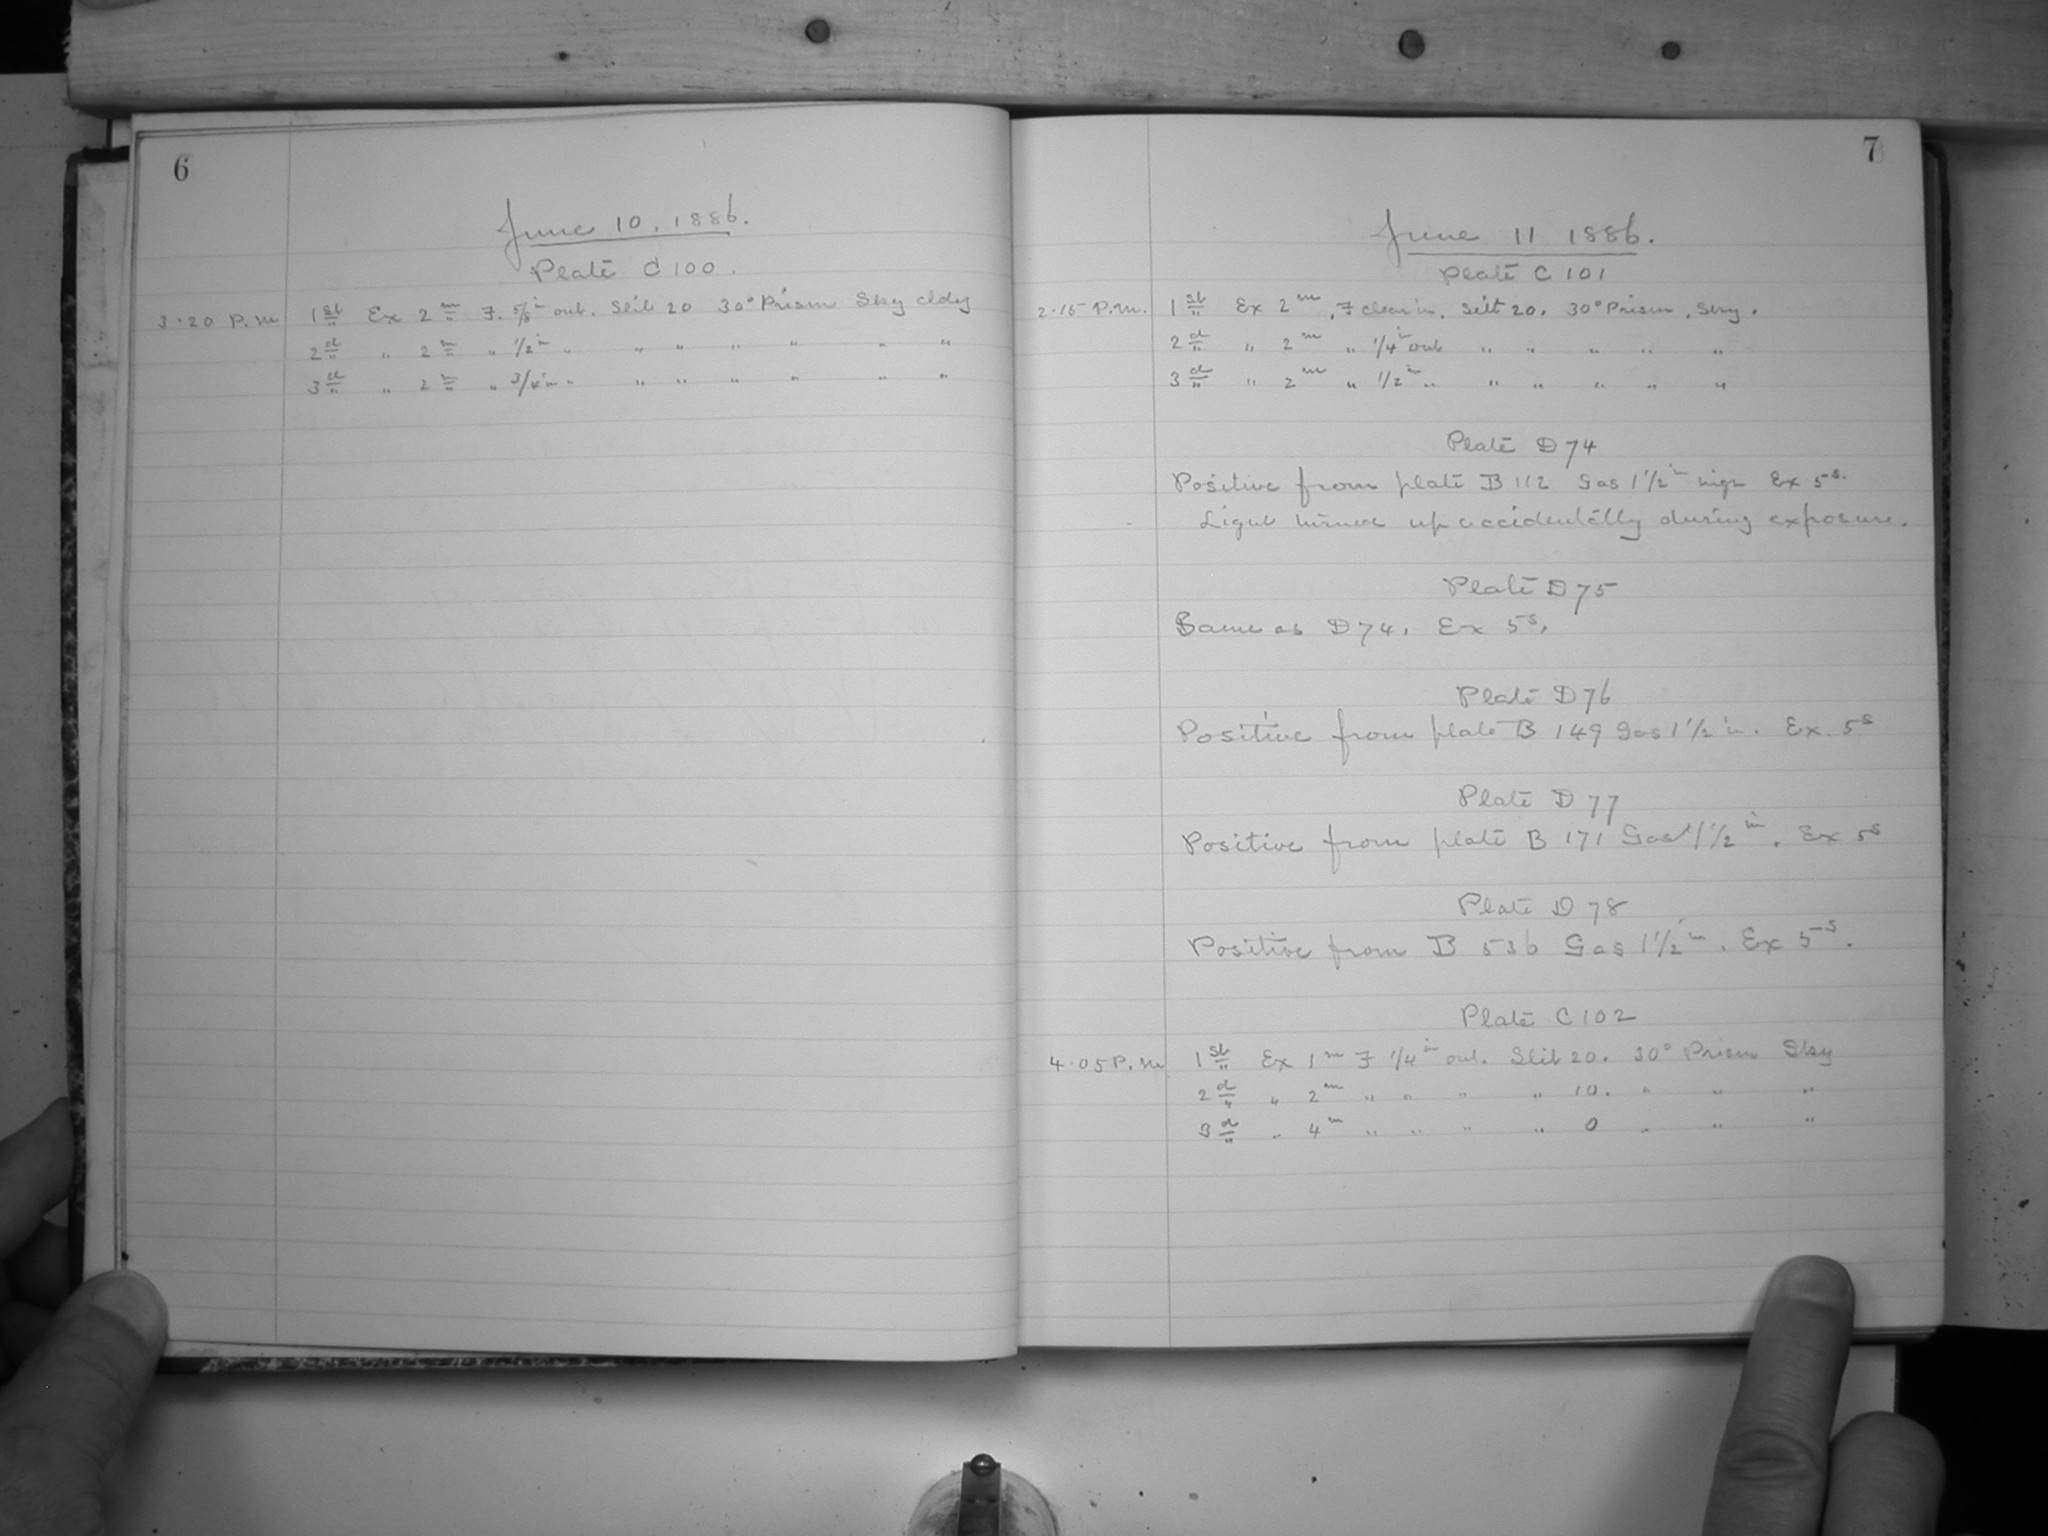 6
June 10, 1886.
Plate C 100.
3.20 P.M. 1st Ex 2m F. 5/8 in out. Slit 20 30° Prism Sky cldy
2d " 2m " 1/2 in " " " " " " "
3d " 2m " 3/4 in " " " " " " "
7
June 11 1886.
Plate C 101
2.15 P.M. 1st Ex 2m, F clear in. Slit 20. 30° Prism, Sky.
2d " 2m " 1/4 in out " " " " "
3d " 2m " 1/2 in " " " " " "
Plate D 74
Positive from plate B 112 Gas 1 1/2 in high Ex 5s.
Light turned up accidentally during exposure.
Plate D 75
Same as D 74. Ex 5s.
Plate D 76
Positive from plate B 149 Gas 1 1/2 in. Ex. 5s
Plate D 77
Positive from plate B 171 Gas 1 1/2 in. Ex 5s
Plate D 78
Positive from B 536 Gas 1 1/2 in. Ex 5s.
Plate C 102
4.05 P.M. 1st Ex 1m F 1/4 in out. Slit 20. 30° Prism Sky
2d " 2m " " " " 10. " " "
3d " 4m " " " " 0 " " "